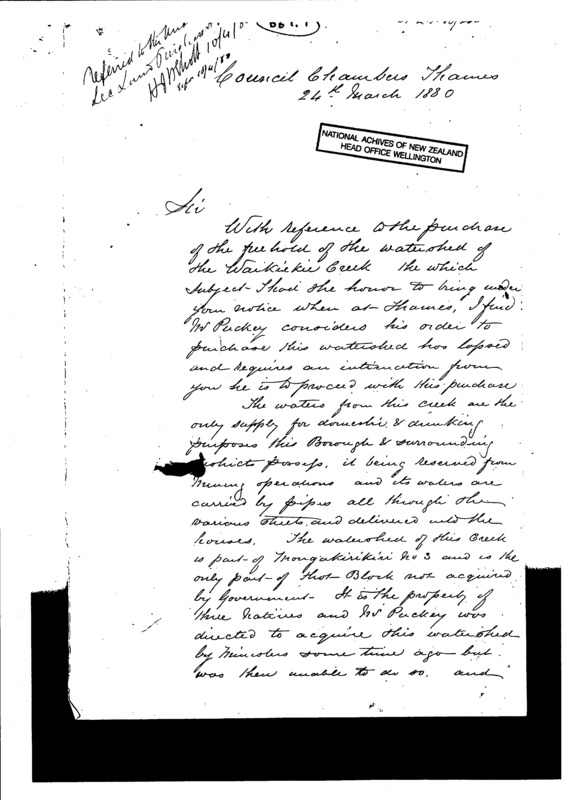 Referred to the Hon
10/4/80
Council Chambers Thames
24th March 1880
NATIONAL ACHIVES OF NEW ZEALAND
HEAD OFFICE WELLINGTON
Sir
With reference to the purchase
of the freehold of the watershed of
the Waikiekie Creek the which
subject I had the honor to bring under
your notice when at Thames, I find
Mr Puckey considers his order to
purchase this watershed has lapsed
and requires an intimation from
you he is to proceed with this purchase
The waters from this creek are the
only supply for domestic & drinking
purposes this Borough & surrounding
district possess, it being reserved from
Mining operations and its waters are
carried by pipes all through the
various streets and delivered into the
houses. The watershed of this Creek
is part of Mongakirikiri No 3 and is the
only part of that Block not acquired
by Government. It is the property of
three Natives and Mr Puckey was
directed to acquire this watershed
by Ministers some time ago but
was then unable to do so. and